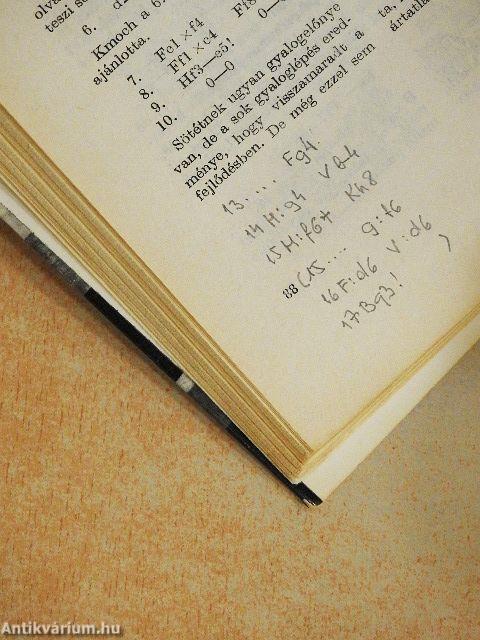 olva
teszi s
6. d
Kmoch a 6.
ajánlotta.
7. Fc1×f4
8. Ff1×c4 F18
9. Hf3—e5! 0—0
10. 0—0
Sötétnek ugyan gyalogelőnye
van, de a sok gyaloglépés ered-
ménye, hogy visszamaradt a
fejlődésben. De még ezzel sem
ta,
ártatla
13. .... Fg4!
14 H:g4 V
15 H:f6+ Kh8
88
(15.... g:f6
16 F:d6 V:d6,
17 Bg3!
Antikvárium.hu